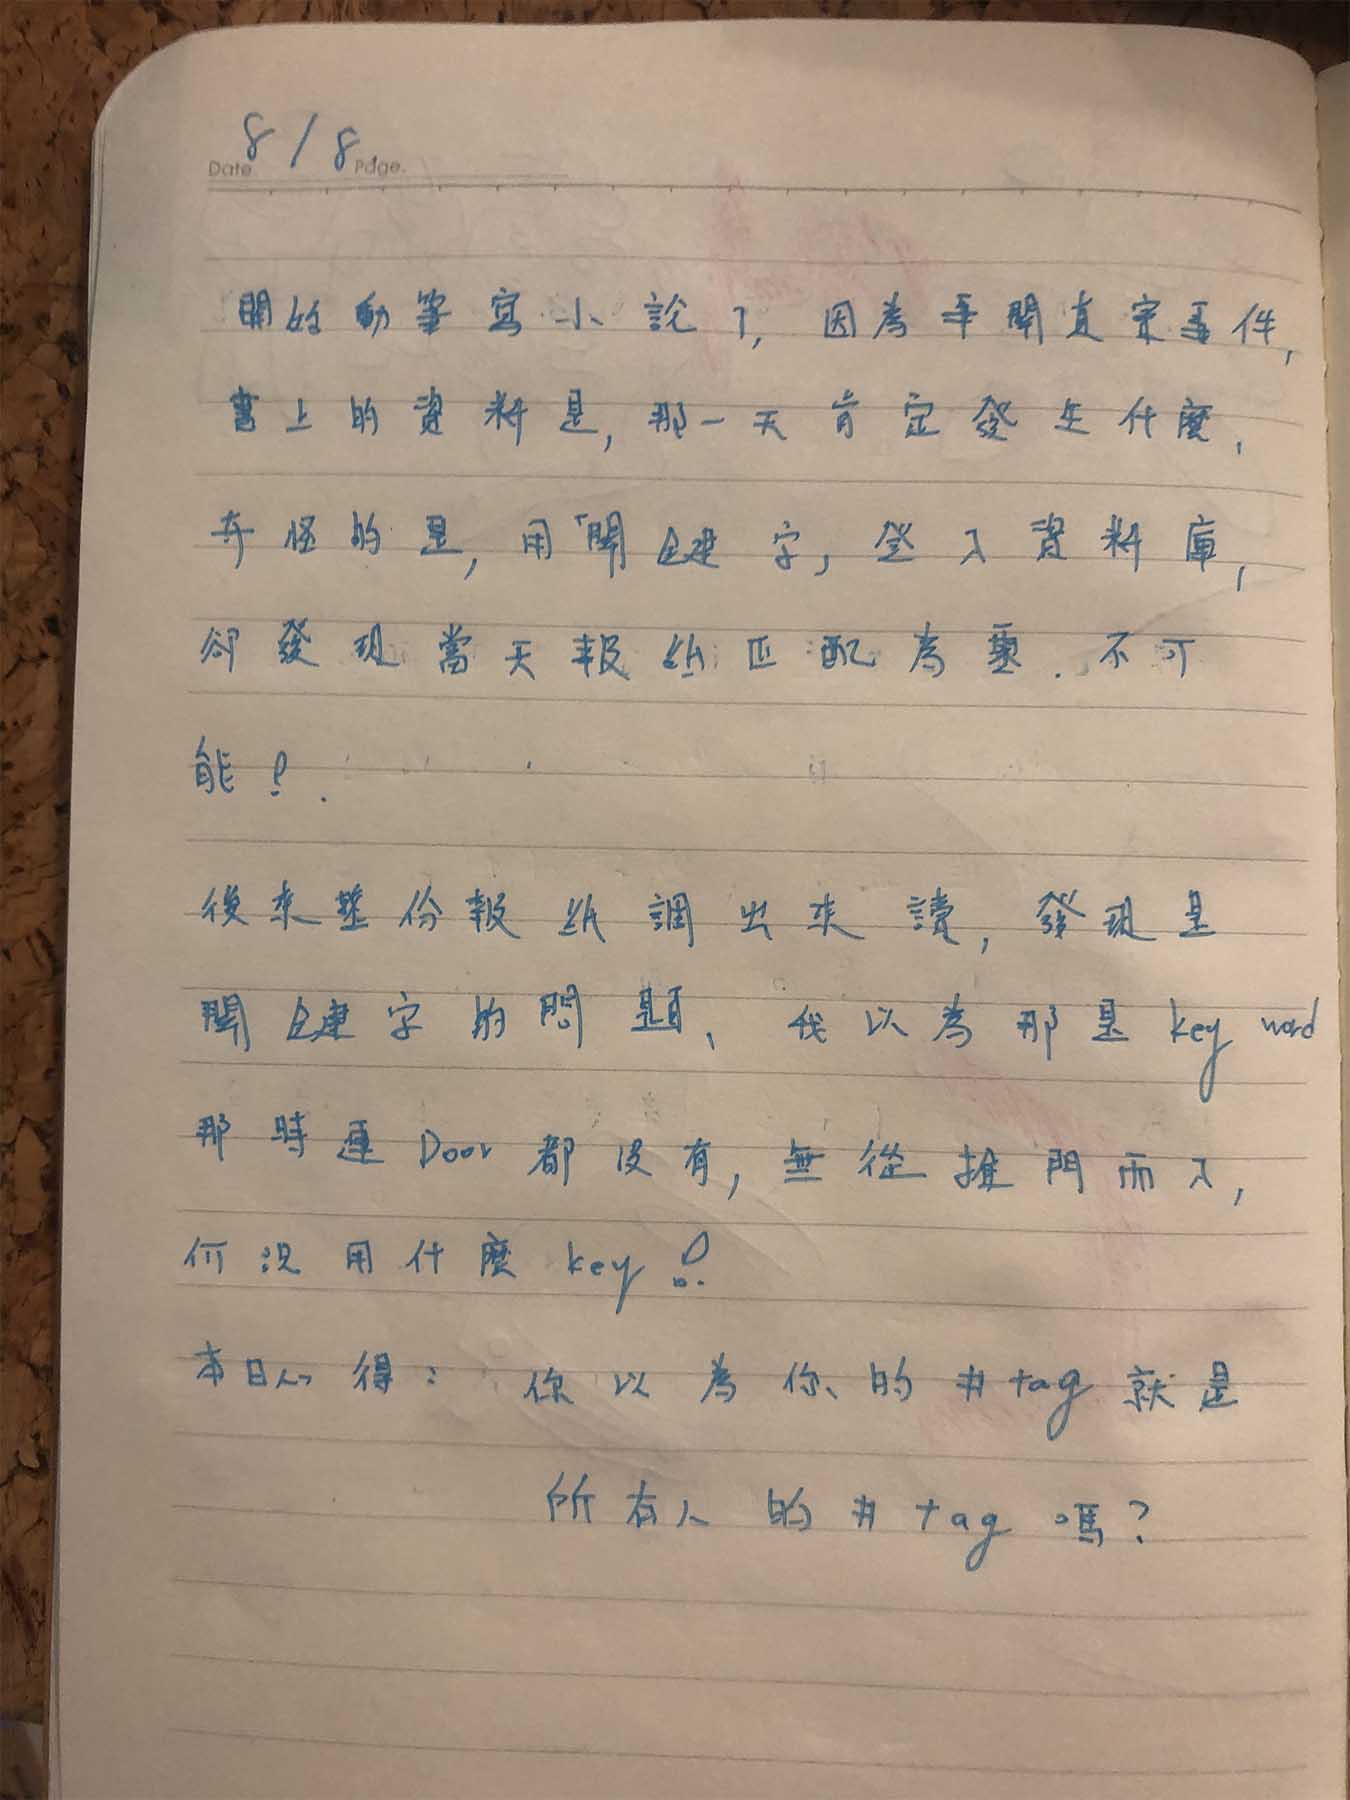 8/8
Date Page.
開始動筆寫小說了, 因為牽關真實事件,
書上的資料是, 那一天肯定發生什麼,
奇怪的是, 用「關鍵字, 登入資料庫,
卻發現當天報紙匹配為零. 不可
能!.
後來整份報紙調出來讀, 發現是
關鍵字的問題、我以為那是 key word
那時連 Door 都沒有, 無從推門而入,
何況用什麼 key !.
本日心得: 你以為你的 #tag 就是
所有人的 #tag 嗎?